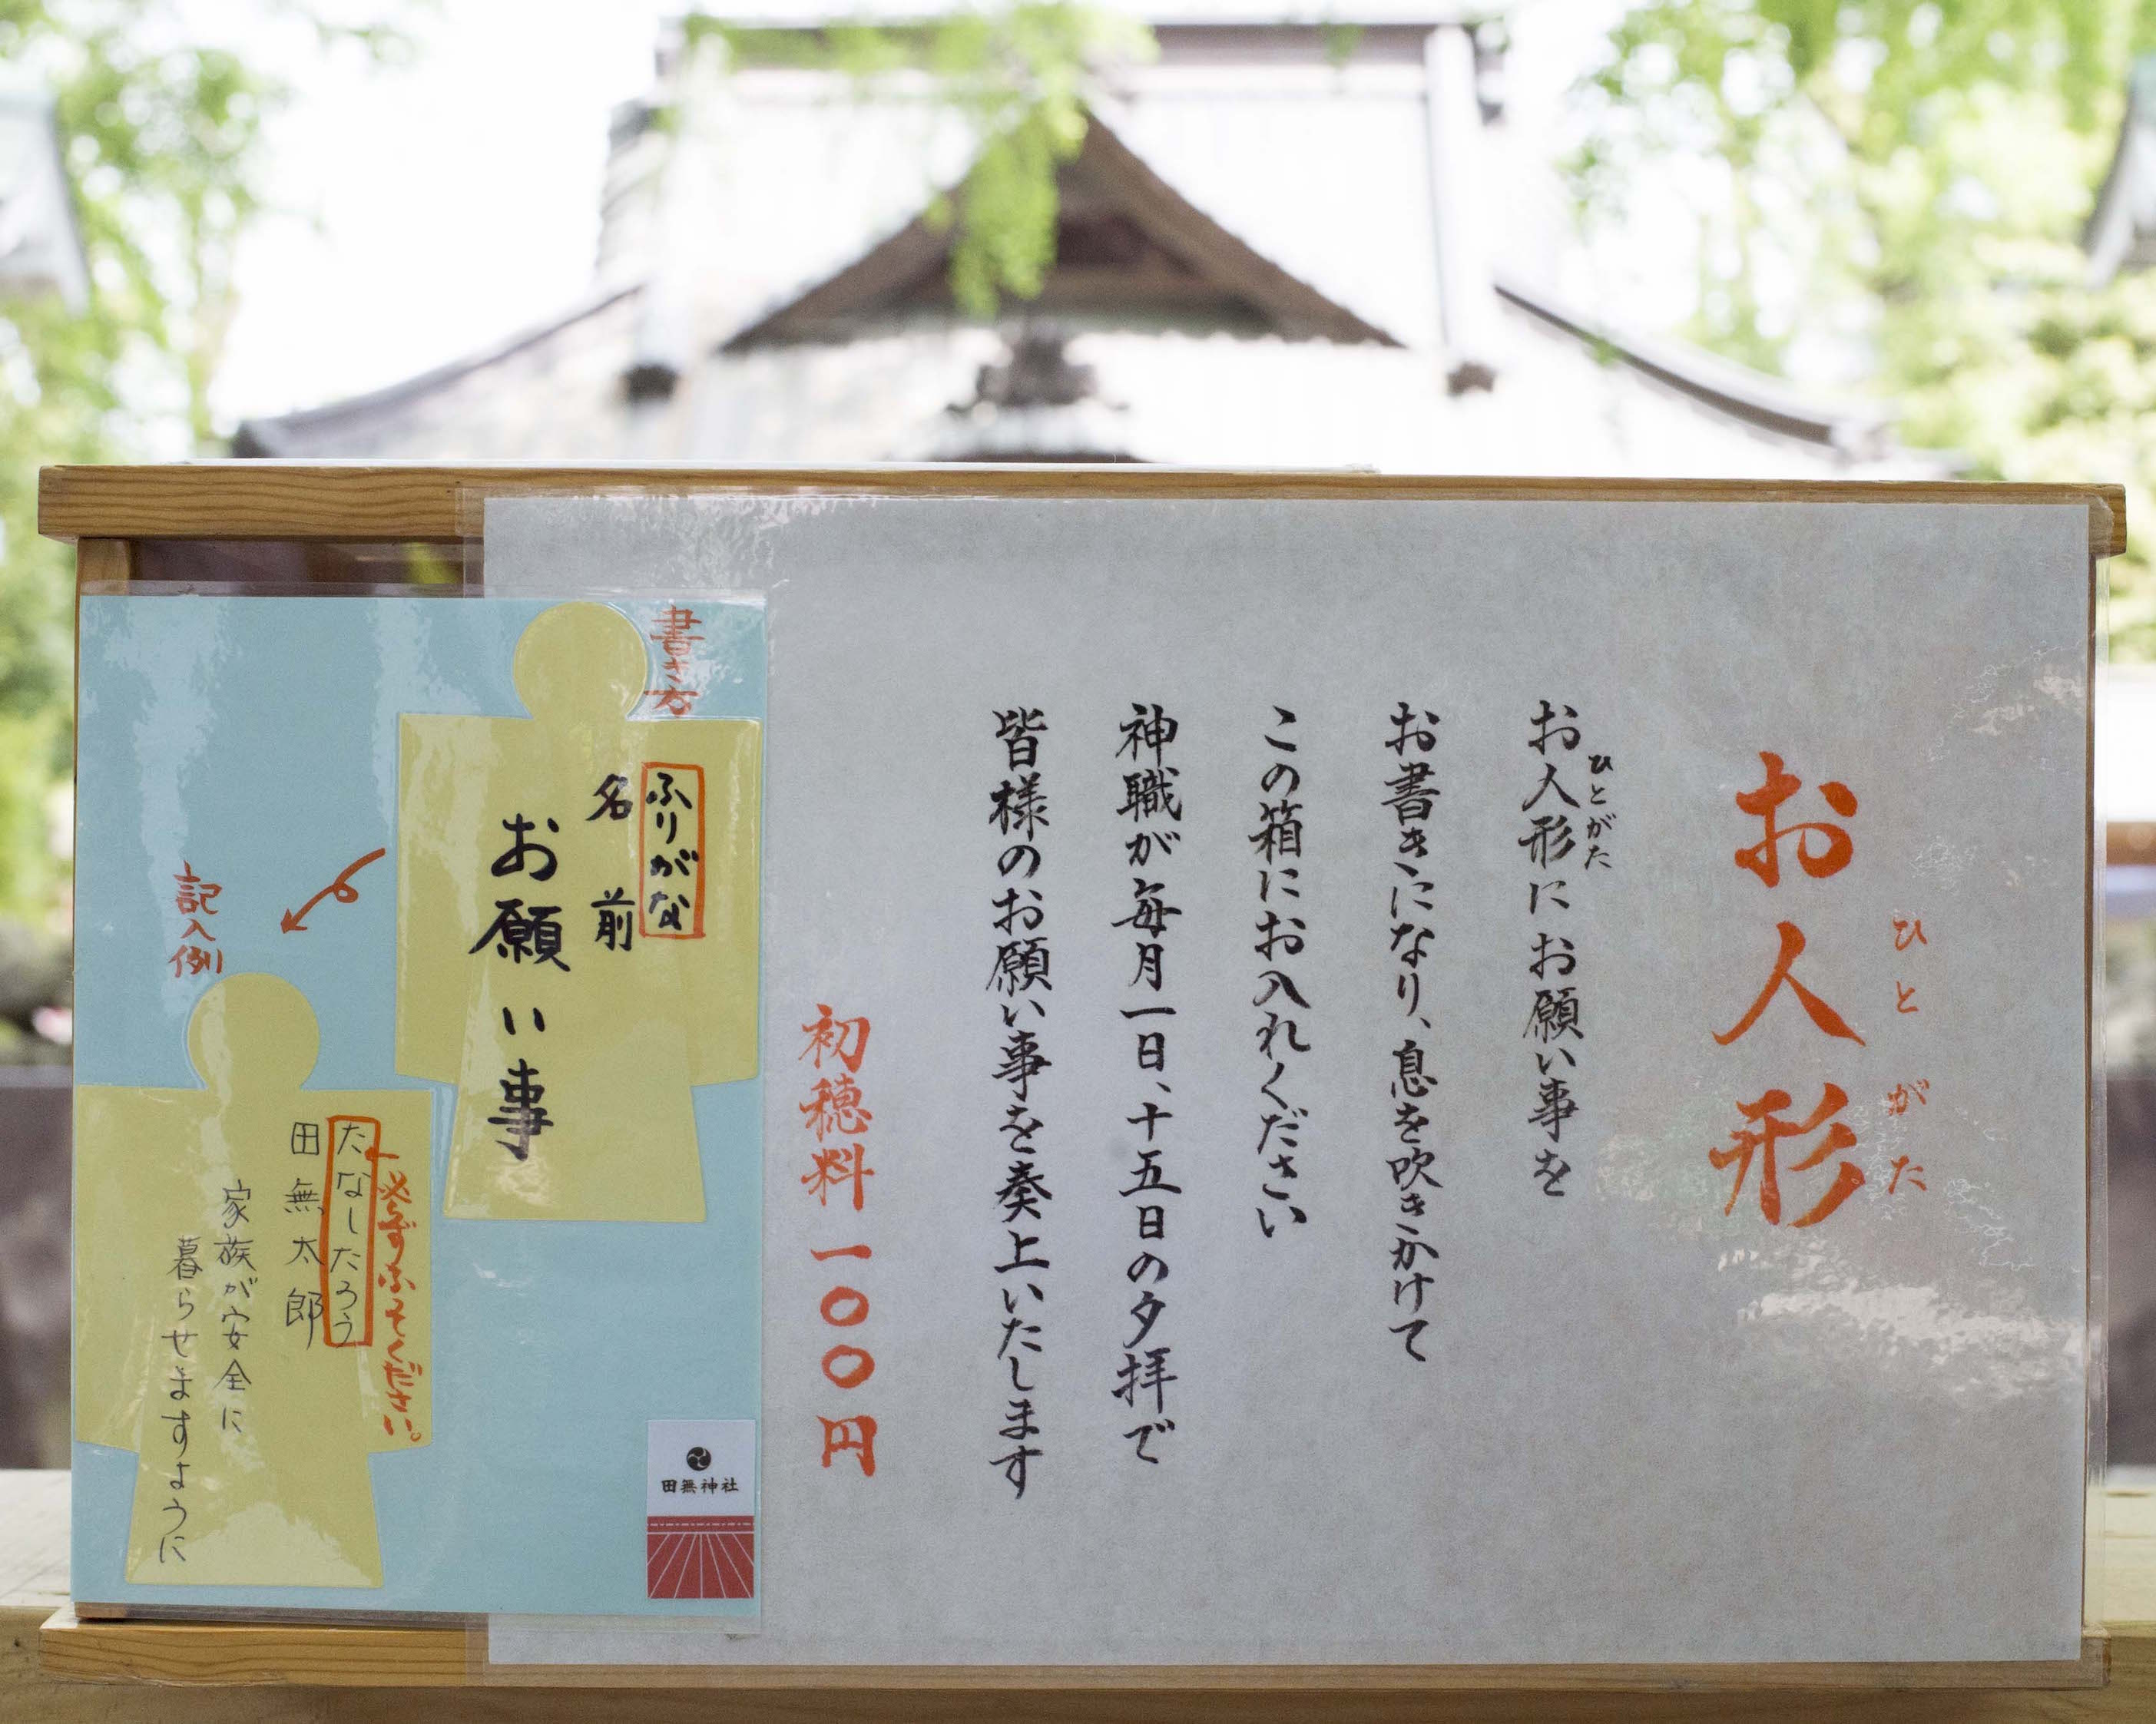 お人形
ひとがた
お人形にお願い事を
ひとがた
お書きになり、息を吹きかけて
この箱にお入れください
神職が毎月一日、十五日の夕拝で
皆様のお願い事を奏上いたします
初穂料一〇〇円
書き方
ふりがな
名前
お願い事
記入例
必らずふってください。
たなしたろう
田無太郎
家族が安全に
暮らせますように
田無神社